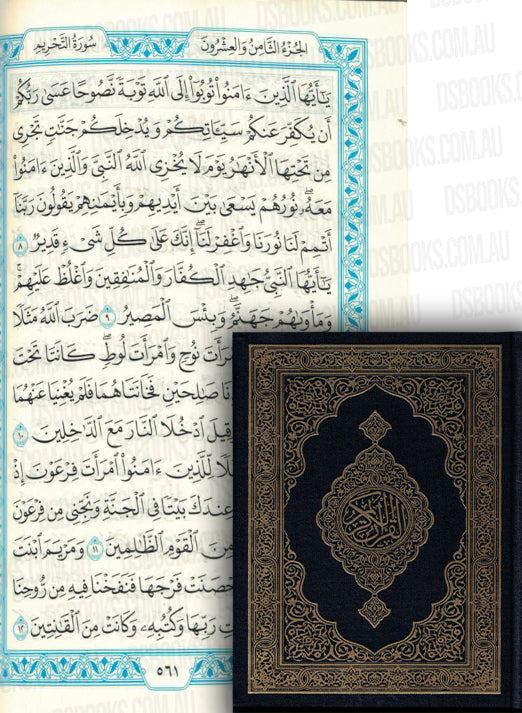 سُورَةُ التَّحْرِيمِ
الجُزْءُ الثَّامِنُ وَالعِشْرُونَ
يَٰٓأَيُّهَا ٱلَّذِينَ ءَامَنُوا۟ تُوبُوٓا۟ إِلَى ٱللَّهِ تَوْبَةً نَّصُوحًا عَسَىٰ رَبُّكُمْ
أَن يُكَفِّرَ عَنكُمْ سَيِّـَٔاتِكُمْ وَيُدْخِلَكُمْ جَنَّٰتٍ تَجْرِى
مِن تَحْتِهَا ٱلْأَنْهَٰرُ يَوْمَ لَا يُخْزِى ٱللَّهُ ٱلنَّبِىَّ وَٱلَّذِينَ ءَامَنُوا۟
مَعَهُۥ ۖ نُورُهُمْ يَسْعَىٰ بَيْنَ أَيْدِيهِمْ وَبِأَيْمَٰنِهِمْ يَقُولُونَ رَبَّنَآ
أَتْمِمْ لَنَا نُورَنَا وَٱغْفِرْ لَنَآ ۖ إِنَّكَ عَلَىٰ كُلِّ شَىْءٍ قَدِيرٌ ٨
يَٰٓأَيُّهَا ٱلنَّبِىُّ جَٰهِدِ ٱلْكُفَّارَ وَٱلْمُنَٰفِقِينَ وَٱغْلُظْ عَلَيْهِمْ ۚ
وَمَأْوَىٰهُمْ جَهَنَّمُ ۖ وَبِئْسَ ٱلْمَصِيرُ ٩ ضَرَبَ ٱللَّهُ مَثَلًا
ٱمْرَأَتَ نُوحٍ وَٱمْرَأَتَ لُوطٍ ۖ كَانَتَا تَحْتَ
صَٰلِحَيْنِ فَخَانَتَاهُمَا فَلَمْ يُغْنِيَا عَنْهُمَا
وَقِيلَ ٱدْخُلَا ٱلنَّارَ مَعَ ٱلدَّٰخِلِينَ ١٠
لِّلَّذِينَ ءَامَنُوا۟ ٱمْرَأَتَ فِرْعَوْنَ إِذْ
عِندَكَ بَيْتًا فِى ٱلْجَنَّةِ وَنَجِّنِى مِن فِرْعَوْنَ
مِنَ ٱلْقَوْمِ ٱلظَّٰلِمِينَ ١١ وَمَرْيَمَ ٱبْنَتَ
أَحْصَنَتْ فَرْجَهَا فَنَفَخْنَا فِيهِ مِن رُّوحِنَا
رَبِّهَا وَكُتُبِهِۦ وَكَانَتْ مِنَ ٱلْقَٰنِتِينَ ١٢
٥٦١
القرآن الكريم
DSBOOKS.COM.AU